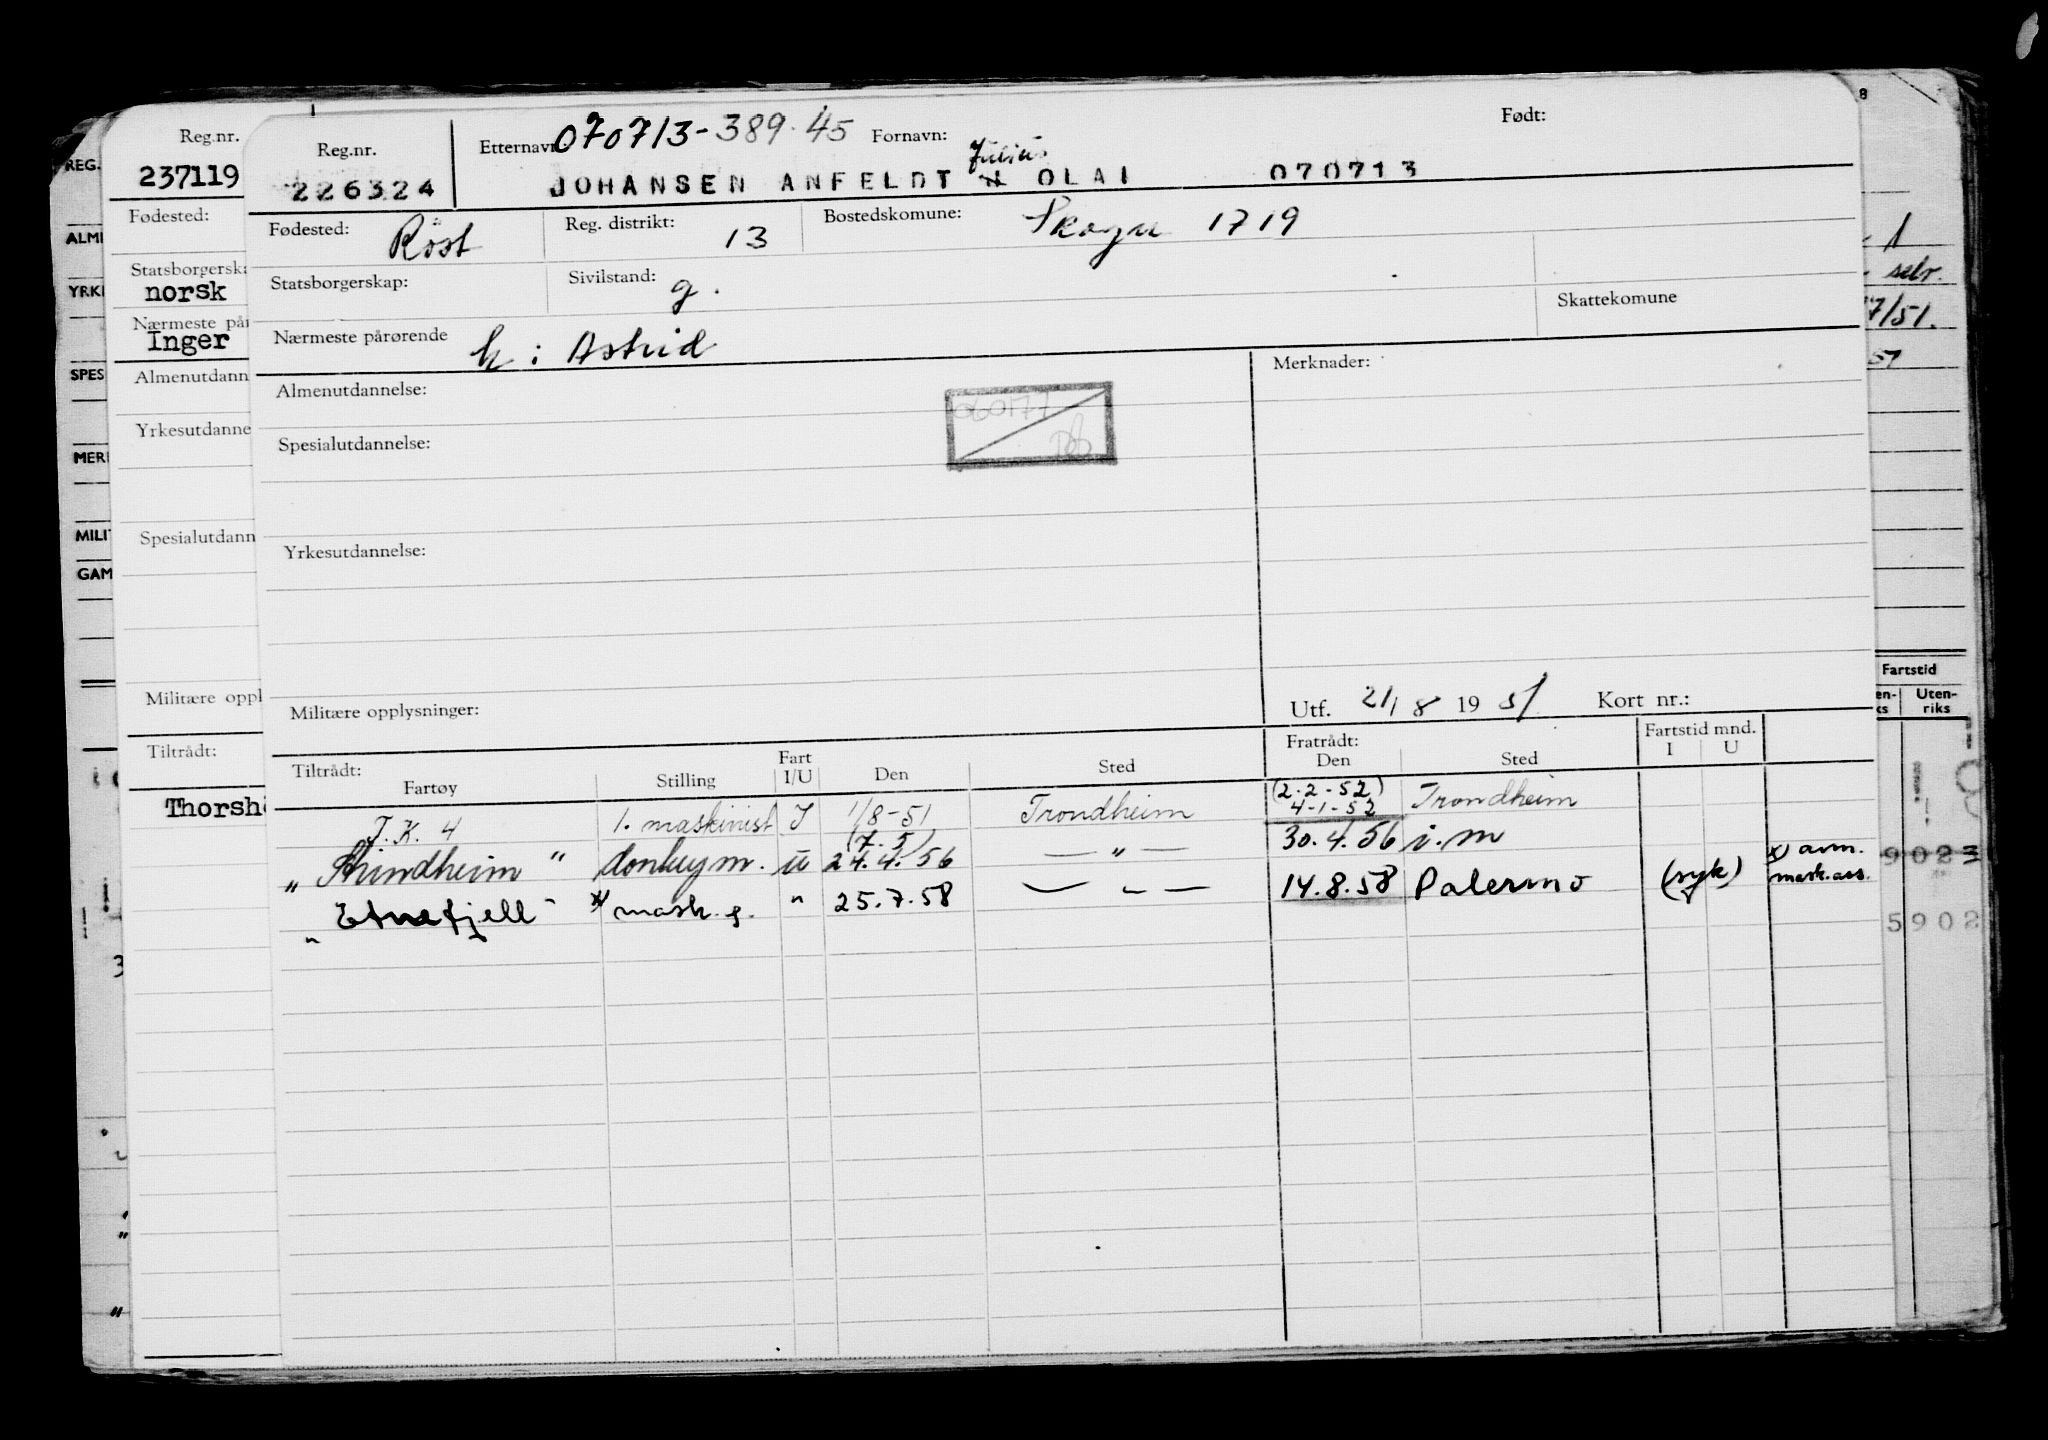 Reg.nr.
237119
Fødested:
norsk
Inger
Spesialutdann
Tiltrådt:
REG.
ALM
YRK
SPES
MER
MILI
GAM
Reg.nr. Etternavn 070713-389.45 Fornavn: Født:
Julius
226324 JOHANSEN ANFELDT OLAI 070713
Fødested: Röst Reg. distrikt: 13 Bostedskomune: Skogn 1719
Statsborgerskap: Sivilstand: g.
Skattekomune
Nærmeste pårørende h: Astrid
Almenutdannelse: Merknader:
060177
Spesialutdannelse:
Yrkesutdannelse:
Militære opplysninger: Utf. 21/8 1951 Kort nr.:
Tiltrådt: Fart Fratrådt: Fartstid mnd.
Fartøy Stilling I/U Den Sted Den Sted I U
(2-2-52)
T.K. 4 1. maskinist I 1/8-51 Trondheim 4-1-52 Trondheim
(7.5)
" " donkeym. u 24.4.56 — " — 30.4.56 i.m
x) avm.
mask.ass.
" Etnefjell " x) mask. " 25.7.58 — " — 14.8.58 Palermo (syk)
1
selv.
7/51.
51
Fartstid
Uten-
riks
5902